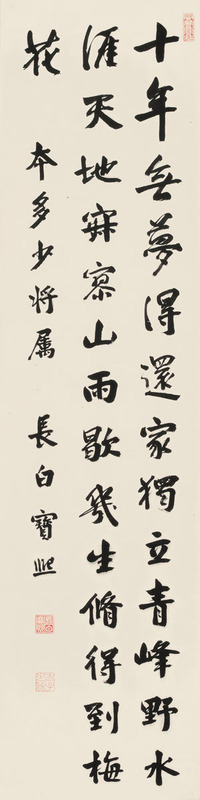 十年無夢得還家獨立青峰野水
涯天地寂寥山雨歇幾生脩得到梅
花
本多少将属　長白寶熙